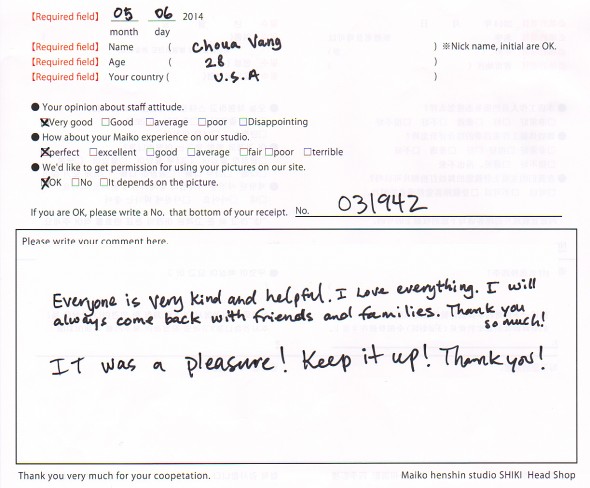 【Required field】 05 06 2014
month day
【Required field】 Name ( Choua Vang ) ※Nick name, initial are OK.
【Required field】 Age ( 28 )
【Required field】 Your country ( U.S.A )
● Your opinion about staff attitude.
☒Very good □Good □average □poor □Disappointing
● How about your Maiko experience on our studio.
☒perfect □excellent □good □average □fair □poor □terrible
● We'd like to get permission for using your pictures on our site.
☒OK □No □It depends on the picture.
If you are OK, please write a No. that bottom of your receipt. No. 031942
Please write your comment here.
Everyone is very kind and helpful. I Love everything. I will
always come back with friends and families. Thank you
so much!
IT was a pleasure! Keep it up! Thank you!
Thank you very much for your coopetation. Maiko henshin studio SHIKI Head Shop